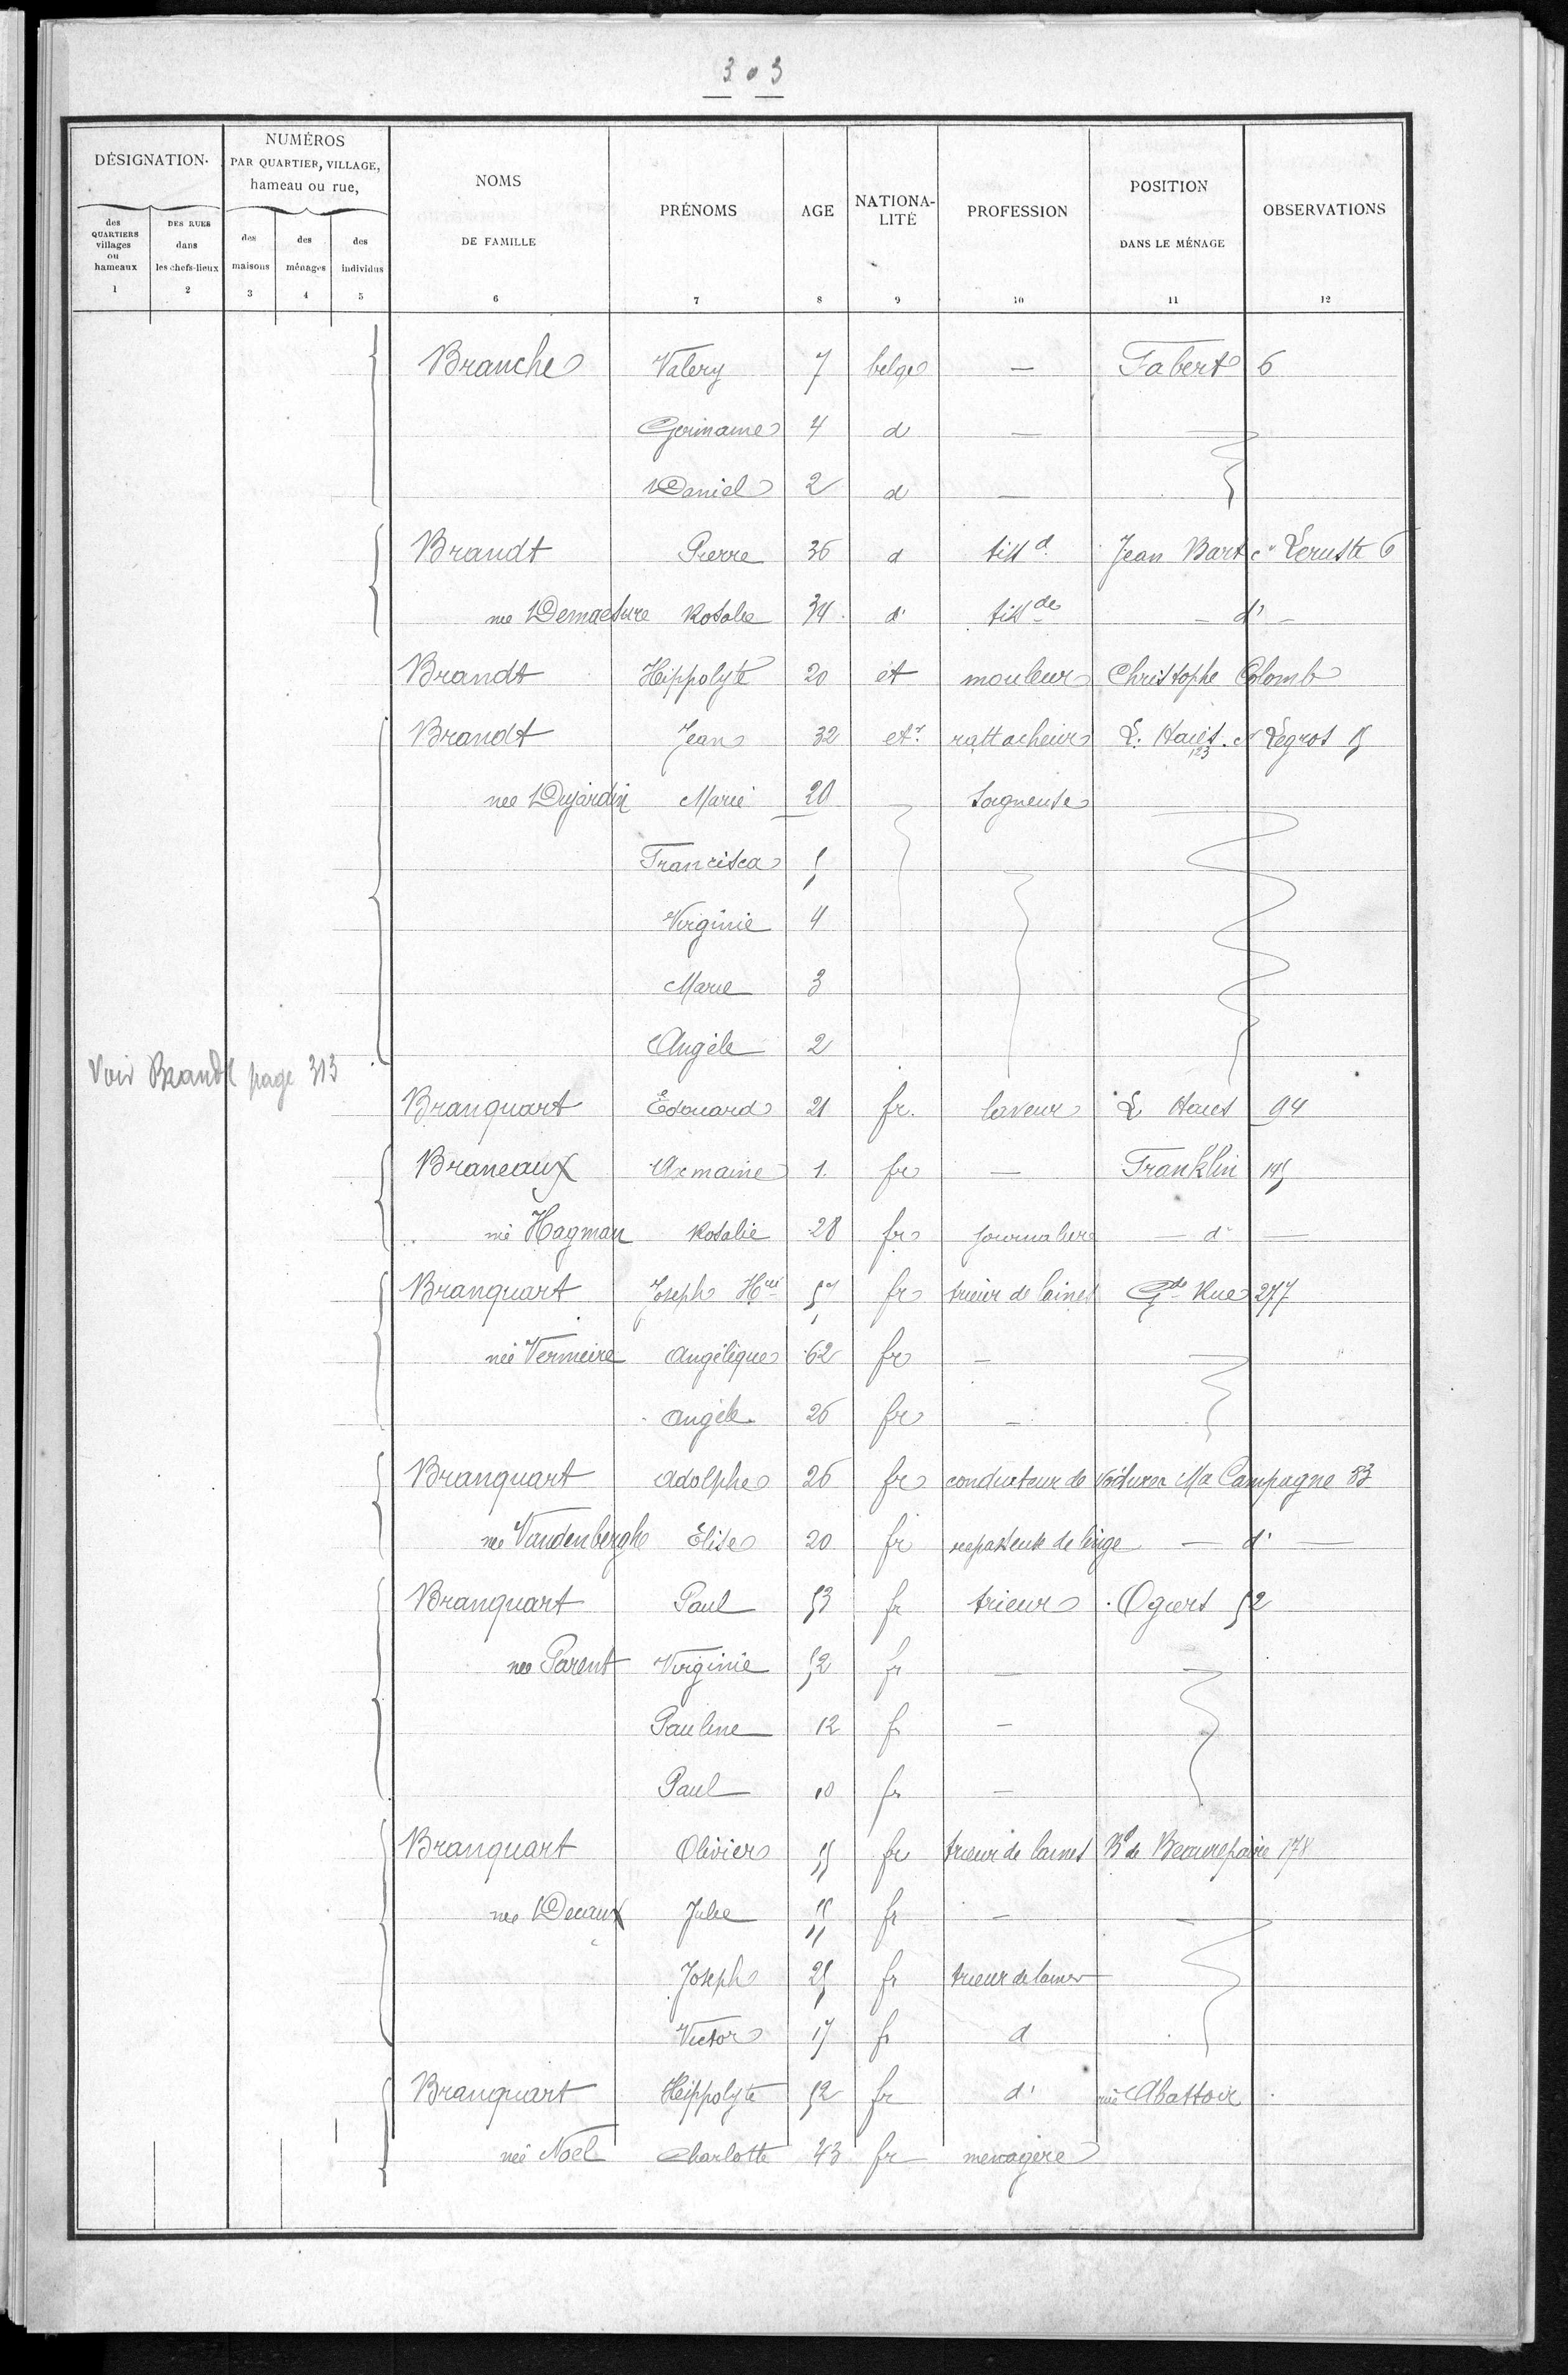 303
DÉSIGNATION
NUMÉROS
PAR QUARTIER, VILLAGE,
hameau ou rue,
NOMS
DE FAMILLE
PRÉNOMS
AGE
NATIONA-
LITÉ
PROFESSION
POSITION
DANS LE MÉNAGE
OBSERVATIONS
des
QUARTIERS
villages
ou
hameaux
DES RUES
dans
les chefs-lieux
des
maisons
des
ménages
des
individus
1 2 3 4 5 6 7 8 9 10 11 12
Branche Valery 7 belge — Fabert 6
Germaine 4 d —
Daniel 2 d —
Brandt Pierre 36 d tissd Jean Bart cr Leruste 6
née Demaeture Rosalie 34 d° tissde — d° —
Brandt Hippolyte 20 et mouleur Christophe Colomb
Brandt Jean 32 etr rattacheur L. Haies 123 cr Legros 15
née Dujardin Marie 20 soigneuse
Francisca 5
Virginie 4
Marie 3
Angèle 2
Voir Brandt page 313
Branquart Edouard 21 fr. laveur L Haies 94
Braneaux Armaine 1 fr — Franklin 145
née Hagman Rosalie 28 fr journalière — d° —
Branquart Joseph Hri 57 fr trieur de laines Gde Rue 277
née Vermeire Angélique 62 fr —
Angèle 26 fr —
Branquart Adolphe 26 fr conducteur de voitures Ma Campagne 53
née Vandenberghe Elise 20 fr repasseuse de linge — d° —
Branquart Paul 53 fr trieur Ogiers 52
née Parent Virginie 52 fr —
Pauline 12 fr —
Paul 10 fr —
Branquart Olivier 55 fr trieur de laines Bd de Beaurepaire 178
née Decaux Julie 55 fr —
Joseph 25 fr trieur de laines
Victor 17 fr d
Branquart Hippolyte 52 fr d° rue Abattoir
née Noël Charlotte 43 fr menagère